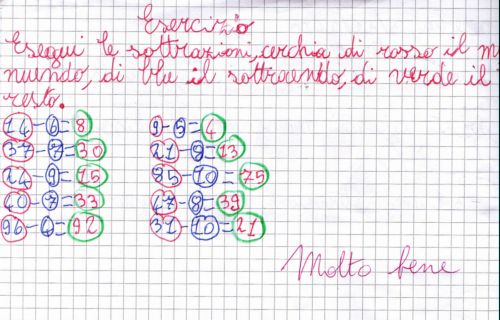 Esercizio
Esegui le sottrazioni, cerchia di rosso il mi
nuendo, di blu il sottraendo, di verde il
resto.
14-6=8 9-5=4
37-7=30 21-8=13
24-9=15 85-10=75
40-7=33 47-8=39
96-4=92 31-10=21
Molto bene